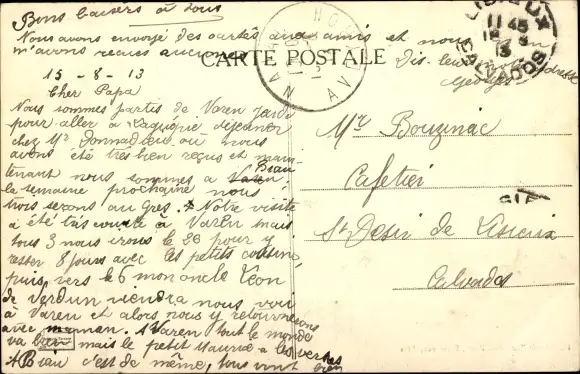 Bons baisers à tous
Nous avons envoyé des cartes aux amis et nous
m'avons reçues aucunes
Dis-leur adresse
Georges
CARTE POSTALE
LISIEUX
11 45
13
CALVADOS
15-8-13
Cher Papa
Nous sommes partis de Varen jeudi
pour aller à Laguépie déjeuner
chez Mr Donnadieu où nous
avons été très bien reçus et main-
tenant nous sommes à Varen Biau
la semaine prochaine nous
irons au Gres. Notre visite
a été très courte à Varen mais
tous 3 nous irons le 26 pour y
rester 8 jours avec les petits cousins,
puis vers le 6 mon oncle Léon
de Verdun viendra nous voir
à Varen et alors nous y retournerons
avec maman. A Varen tout le monde
va bien mais le petit Maurice a les vertes
A Biau c'est de même, tous vont bien
Mr Bouzinac
Cafetier
St Desir de Lisieux
Calvados